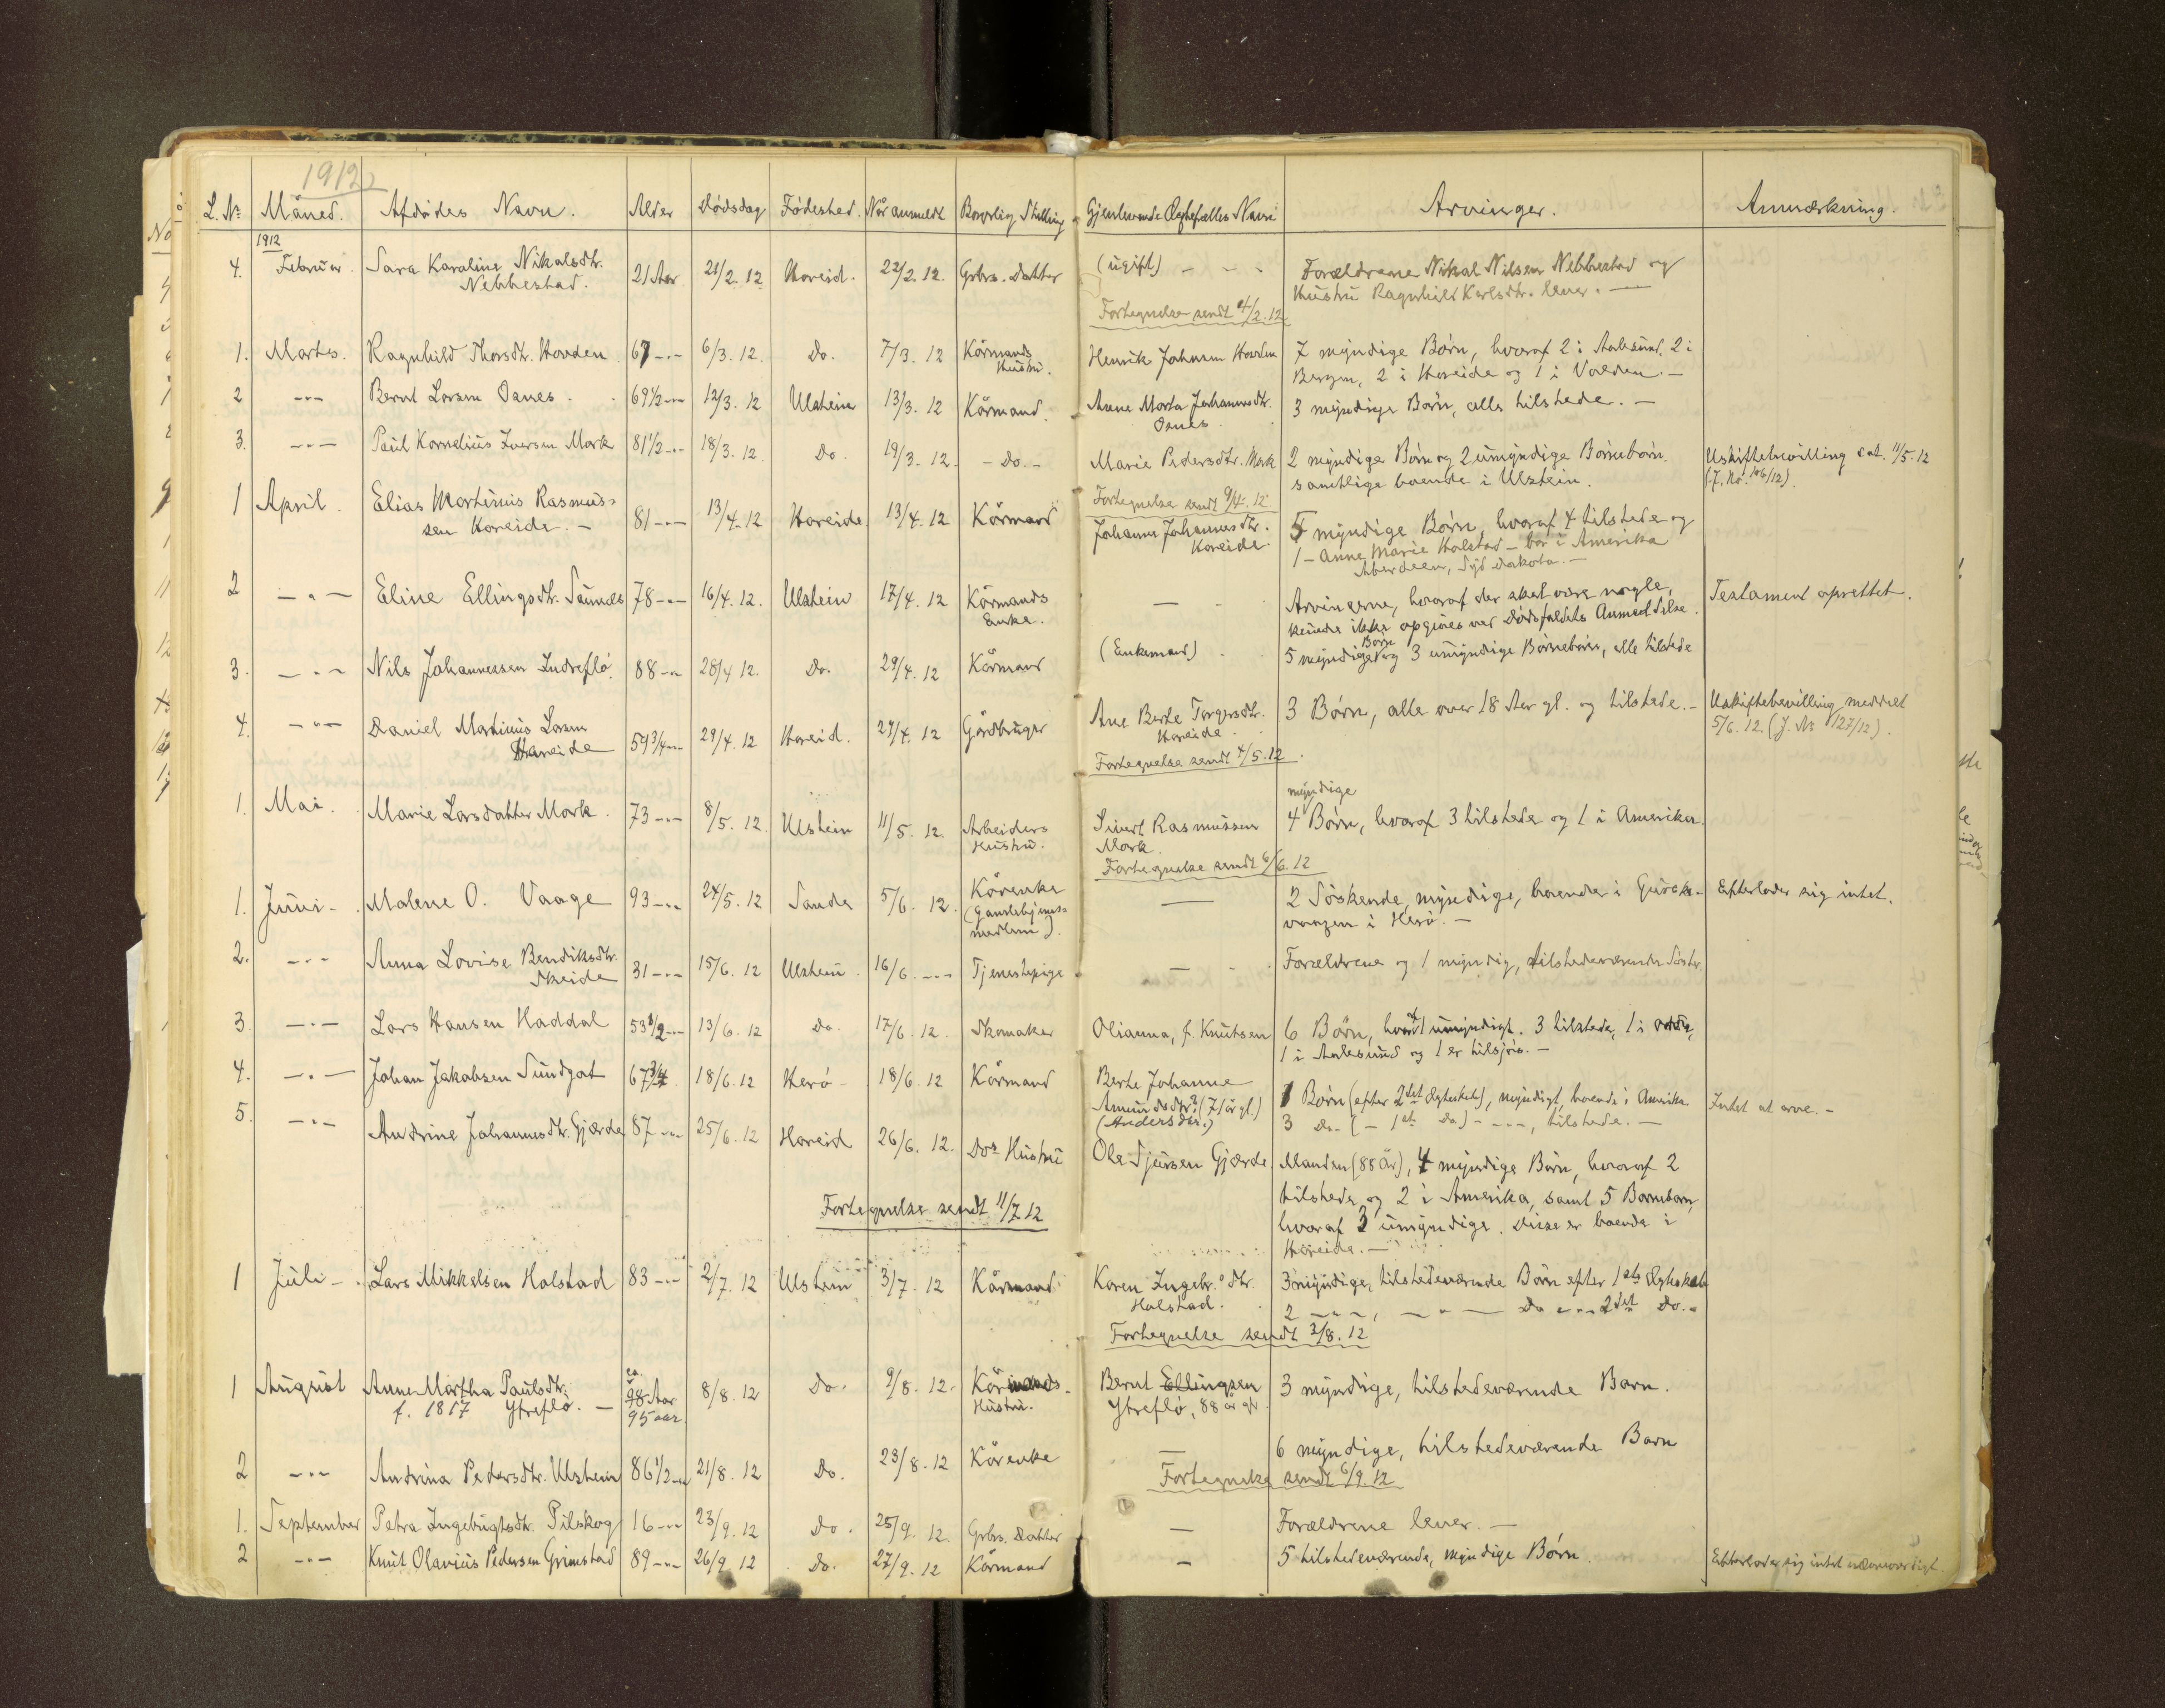 1912
L. Nr. Måned. Afdødes Navn. Alder Dødsdag Fødested. Når anmeldt Borgerlig Stilling Gjenlevende Ægtefælles Navn Arvinger. Anmærkning.
1912
4. Februar. Sara Karoline Nikolsdtr. 21 Aar 21/2. 12 Hareid. 22/2. 12. Grbrs. Datter (ugift) - - - Forældrene Nikol Nilsen Nebbestad og
Nebbestad. Hustru Ragnhild Karlsdtr. lever. -
Fortegnelse sendt /2. 12
1. Marts. Ragnhild Thorsdtr. Hovden 67 -"- 6/3. 12. Do. 7/3. 12 Kårmands Henrik Johansen Hovden 7 myndige Børn, hvoraf 2 i Aalesund, 2 i
Hustru. Bergen, 2 i Hareide og 1 i Volden. -
2 -"- Bernt Larsen Osnes. 69 1/2 -"- 12/3. 12 Ulstein 13/3. 12 Kårmand. Anne Marta Johannesdtr. 3 myndige Børn, alle tilstede. -
Osnes.
3. -"- Paul Kornelius Iversen Mork 81 1/2 -"- 18/3. 12. Do. 19/3. 12. - Do. - Marie Pedersdtr. Mork 2 myndige Børn og 2 umyndige Børnebørn. Uskiftebevilling 11/5. 12
samtlige boende i Ulstein. (J. No. 106/12).
Fortegnelse sendt 9/4. 12
1 April. Elias Martinius Rasmus- 81 -"- 13/4. 12 Hareide 13/4. 12 Kårmand Johanne Johannesdtr. 5 myndige Børn, hvoraf 4 tilstede og
sen Hareide. - Hareide. 1 - Anne Marie Halstad - bor i Amerika
Aberdeen, Syd Dakota. -
2 -"- Eline Ellingsdtr. Saunes 78 -"- 16/4. 12. Ulstein 17/4. 12 Kårmands - Arvingerne, hvoraf der skal være nogle, Testament oprettet.
Enke. kunde ikke opgives ved Dødsfaldets Anmeldelse.
3. -"- Nils Johannessen Indreflø. 88 -"- 28/4 12. Do. 29/4. 12 Kårmand (Enkemand) 5 myndige Børn og 3 umyndige Børnebørn, alle tilstede
4. -"- Daniel Martinius Larsen 59 3/4 -"- 29/4. 12 Hareid. 29/4. 12 Gårdbruger Ane Berte Torgersdtr. 3 Børn, alle over 18 Aar gl. og tilstede. - Uskiftebevilling meddelt
Hareide Hareide. 5/6. 12. (J. No 127/12).
Fortegnelse sendt 4/5. 12.
1. Mai. Marie Larsdatter Mork. 73 -"- 8/5. 12. Ulstein 11/5. 12. Arbeiders Sivert Rasmussen 4 myndige Børn, hvoraf 3 tilstede og 1 i Amerika.
Hustru. Mork.
Fortegnelse sendt 6/6. 12
1. Juni - Malene O. Vaage 93 -"- 24/5. 12 Sande 5/6. 12. Kårenke - 2 Søskende, myndige, boende i Gurske- Efterlader sig intet.
(Gamlehjems- vaagen i Herø. -
medlem).
2. -"- Anna Lovise Bendiksdtr. 31 -"- 15/6. 12 Ulstein. 16/6. -"- Tjenestepige - Forældrene og 1 myndig, tilstedeværende Søster.
Skeide
3. -"- Lars Hansen Haddal 53 1/2 -"- 13/6. 12 Do. 17/6. 12. Skomaker Olianna, f. Knutsen 6 Børn, hvoraf 1 umyndigt. 3 tilstede, 1 i
1 i Aalesund og 1 er tilsjøs. -
4. -"- Johan Jakobsen Sundgot 67 3/4 18/6. 12 Herø 18/6. 12 Kårmand Berte Johanne 1 Børn (efter 2det Ægteskab), myndigt, boende i Amerika. Intet at arve. -
Amundsdtr? (71 år gl.) 3 Do. (- 1ste Do) - -"-, tilstede. -
(Andersdtr.)
5. -"- Andrine Johannesdtr. Gjærde 87 -"- 25/6. 12 Hareid 26/6. 12. Dos Hustru Ole Sjursen Gjærde Manden (88 år), 4 myndige Børn, hvoraf 2
tilstede og 2 i Amerika, samt 5 Barnebarn,
hvoraf 3 umyndige. Disse er boende i
Hareide. -
Fortegnelse sendt 11/7 12
1 Juli - Lars Mikkelsen Halstad 83 -"- 2/7. 12 Ulstein 3/7. 12 Kårmand Karen Ingebr.dtr. 3 myndige, tilstedeværende Børn efter 1ste Ægteskab
Halstad. 2 -"-, -"- Do -"- 2det Do.
Fortegnelse sendt 3/8. 12
1 August Anne Martha Paulsdtr. ca. 98 Aar 8/8. 12 Do. 9/8. 12. Kårmands Bernt Ellingsen 3 myndige, tilstedeværende Barn.
f. 1817 Ytreflø. - 95 aar. Hustru. Ytreflø, 88 år gl.
2 -"- Andrina Pedersdtr. Ulstein 86 1/2 -"- 21/8. 12 Do. 23/8. 12 Kårenke - 6 myndige, tilstedeværende Barn
Fortegnelse sendt 6/9 12
1. September Petra Ingebrigtsdtr. Pilskog 16 -"- 23/9. 12 Do. 25/9. 12. Grbrs. Datter - Forældrene lever. -
2 -"- Knut Olavius Pedersen Grimstad 89 -"- 26/9. 12 Do. 27/9. 12 Kårmand - 5 tilstedeværende, myndige Børn. Efterlader sig intet